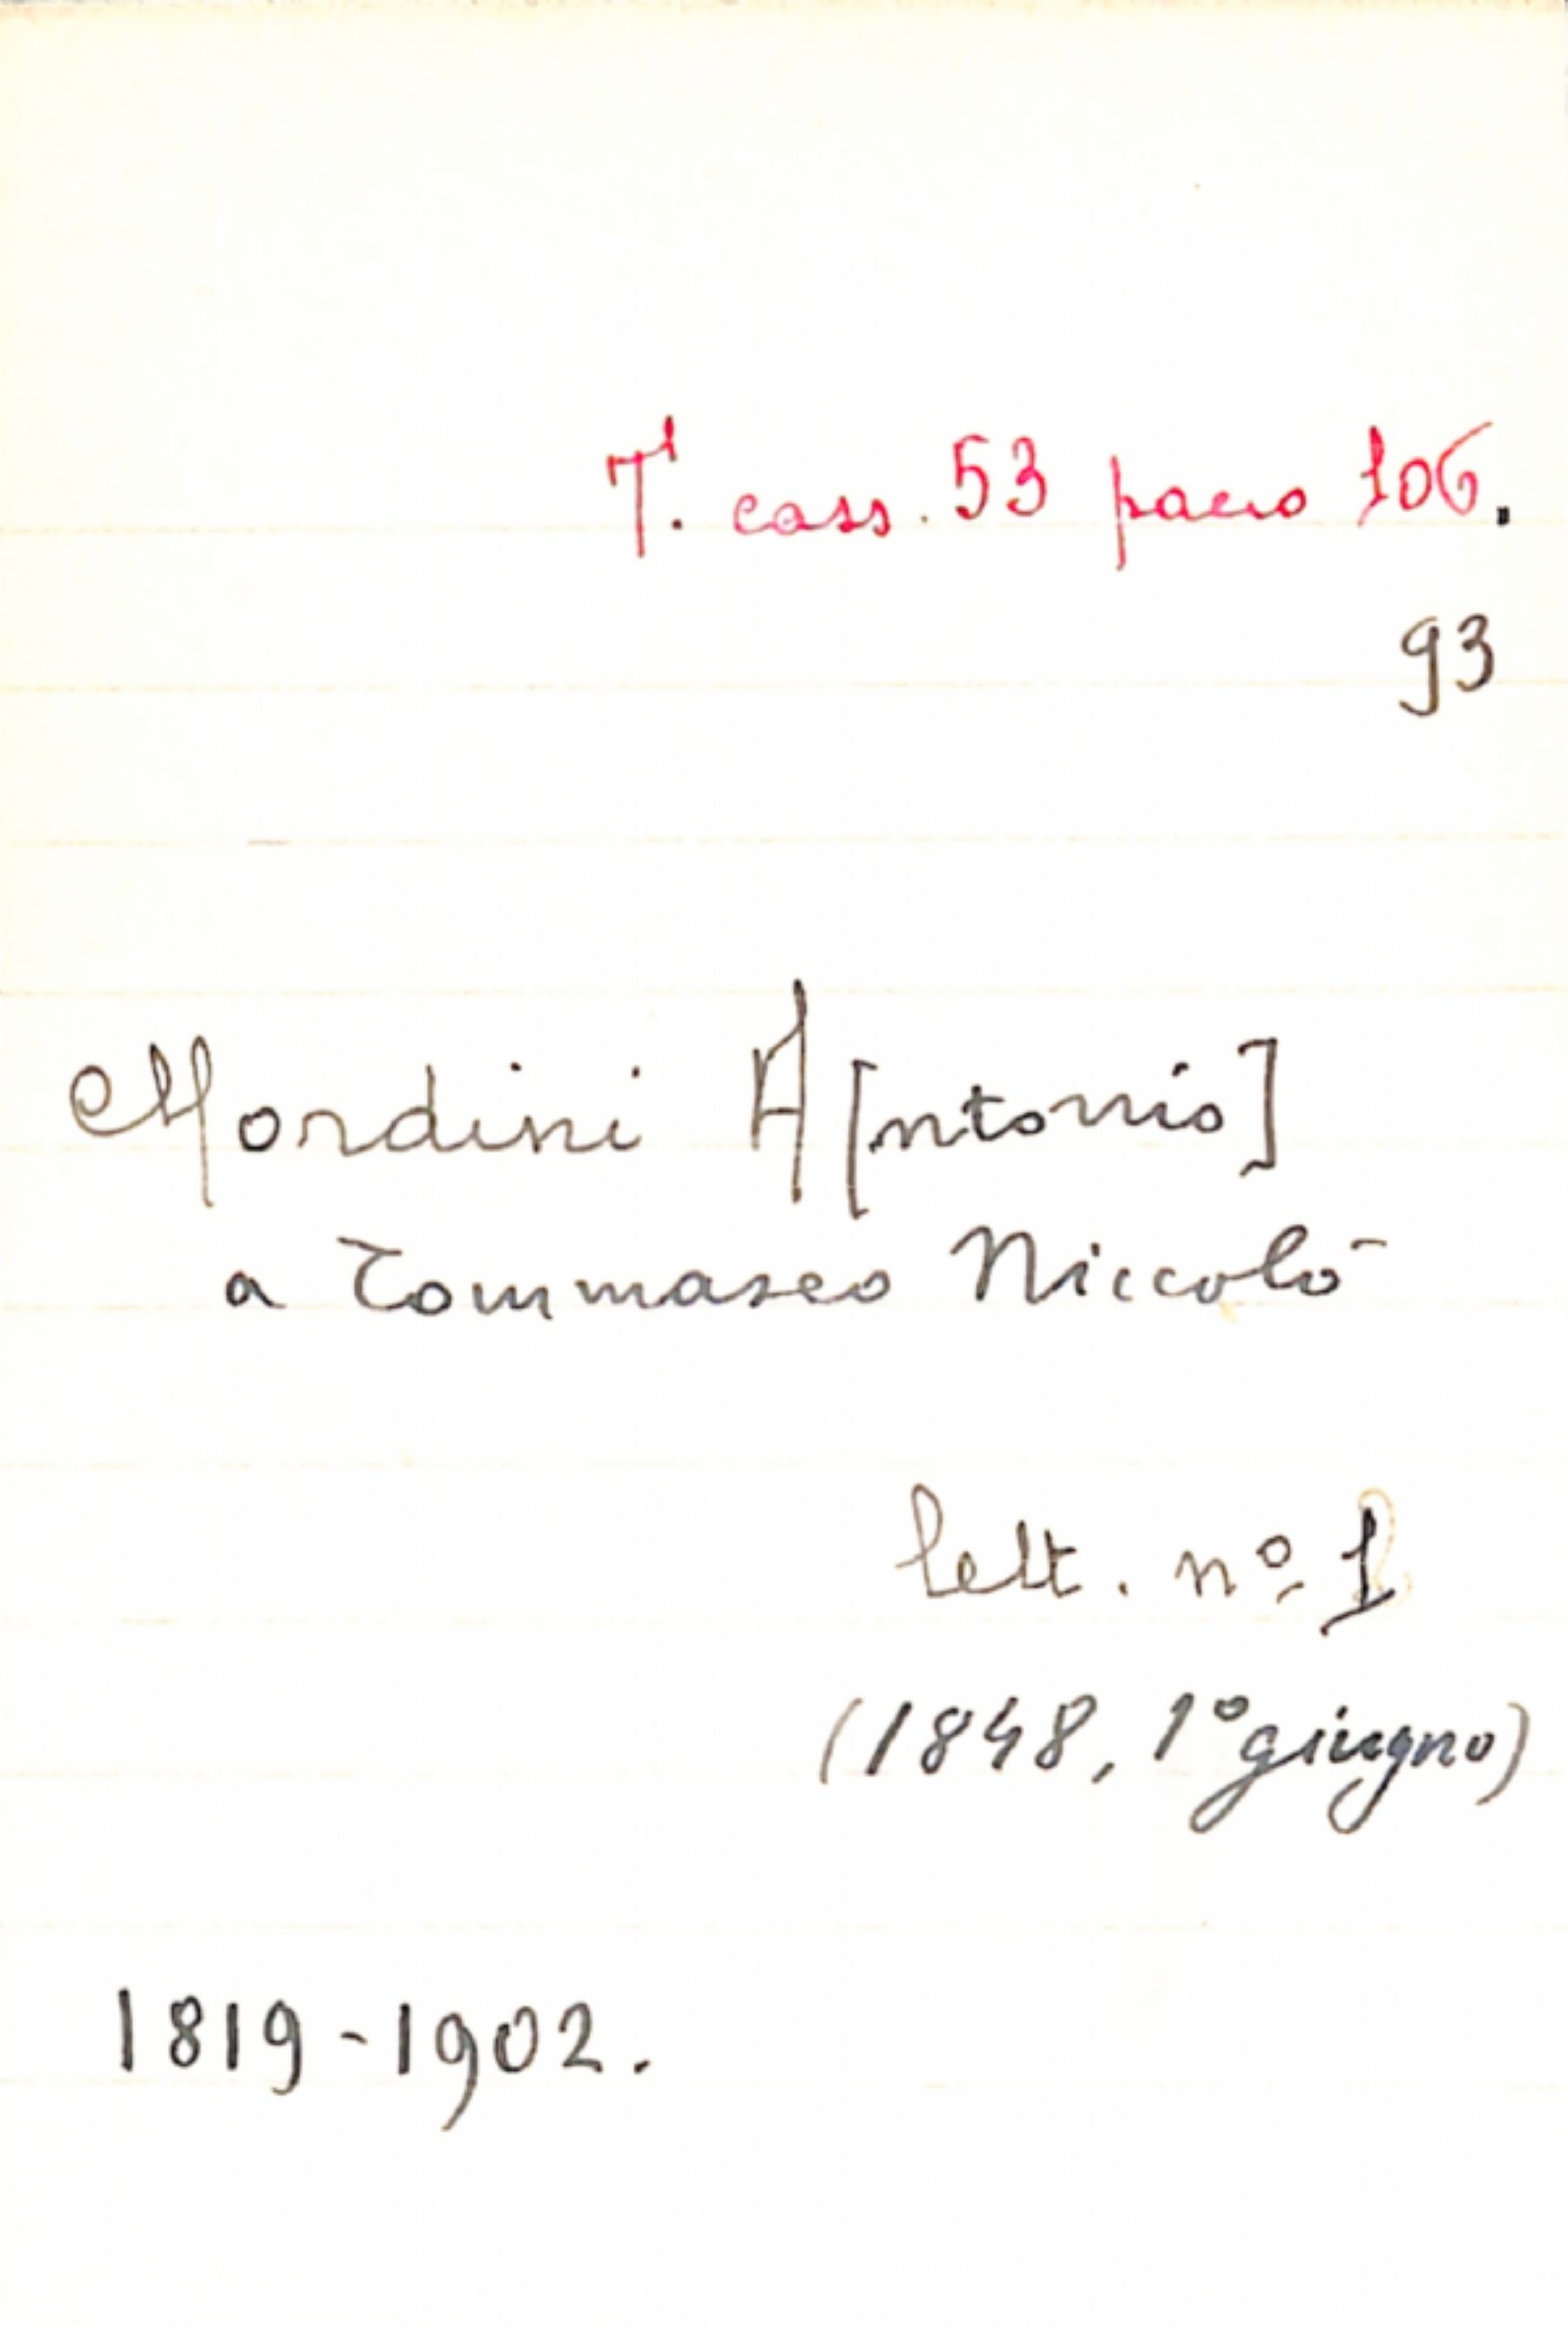 T. cass. 53 pacco 106.
93
Mordini A[ntonio]
a Tommaseo Niccolò
lett. nº 1
(1848, 1º giugno)
1819-1902.